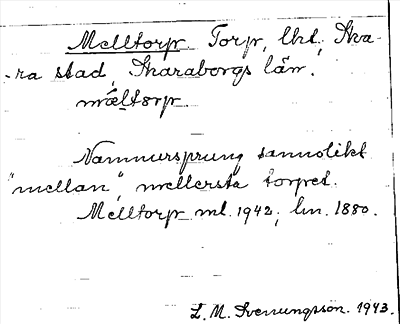 Melltorp Torp, lht, Ska-
-ra stad, Skaraborgs län.
mæltorp.
Namnursprung sannolikt
"mellan", mellersta torpet.
Melltorp ml. 1942, ln. 1880.
L. M. Svenungsson. 1943.